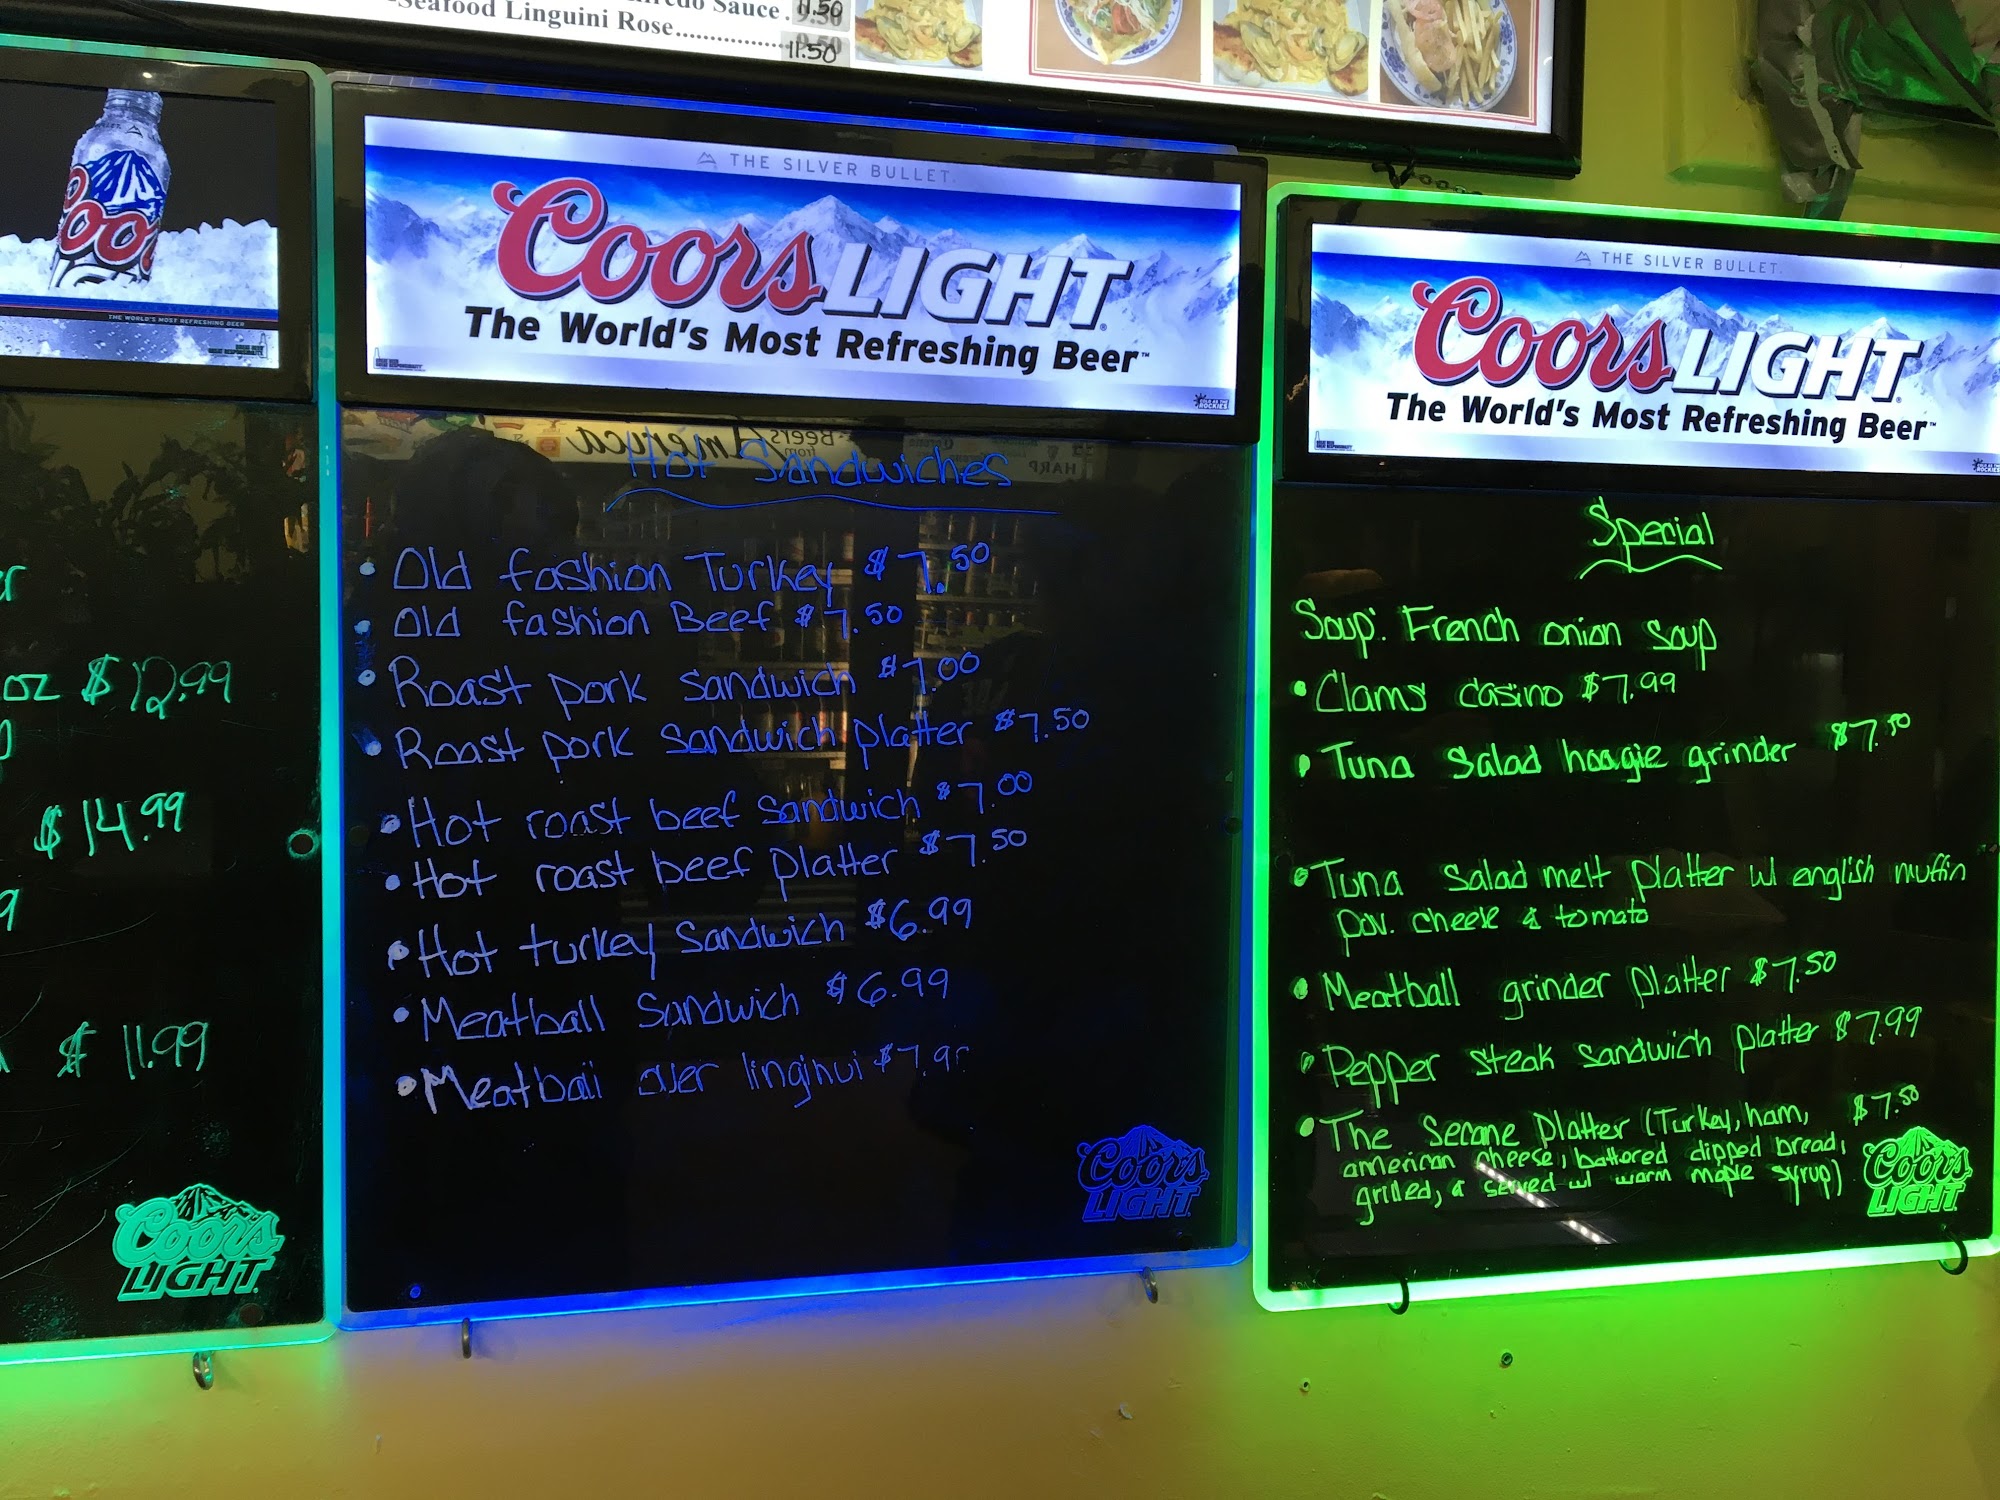 Sauce . 11.50
Seafood Linguini Rose.................... 11.50
Coo
THE WORLD'S MOST REFRESHING BEER
oz $12.99
$14.99
9
$11.99
Coors
LIGHT
THE SILVER BULLET.
Coors LIGHT
The World's Most Refreshing Beer™
Hot Sandwiches
• Old fashion Turkey $7.50
• Old fashion Beef $7.50
• Roast pork sandwich $7.00
• Roast pork sandwich platter $7.50
• Hot roast beef sandwich $7.00
• Hot roast beef platter $7.50
• Hot turkey sandwich $6.99
• Meatball sandwich $6.99
• Meatball over
Coors
LIGHT
THE SILVER BULLET.
Coors LIGHT
The World's Most Refreshing Beer™
Special
Soup: French onion soup
• Clams casino $7.99
• Tuna salad hoagie grinder $7.50
• Tuna salad melt platter w/ english muffin
& tomato
• Meatball grinder platter $7.50
• Pepper steak sandwich platter $7.99
• The Platter (Turkey, ham, $7.50
american cheese, battered dipped bread,
grilled, & served w/ warm maple syrup)
Coors
LIGHT